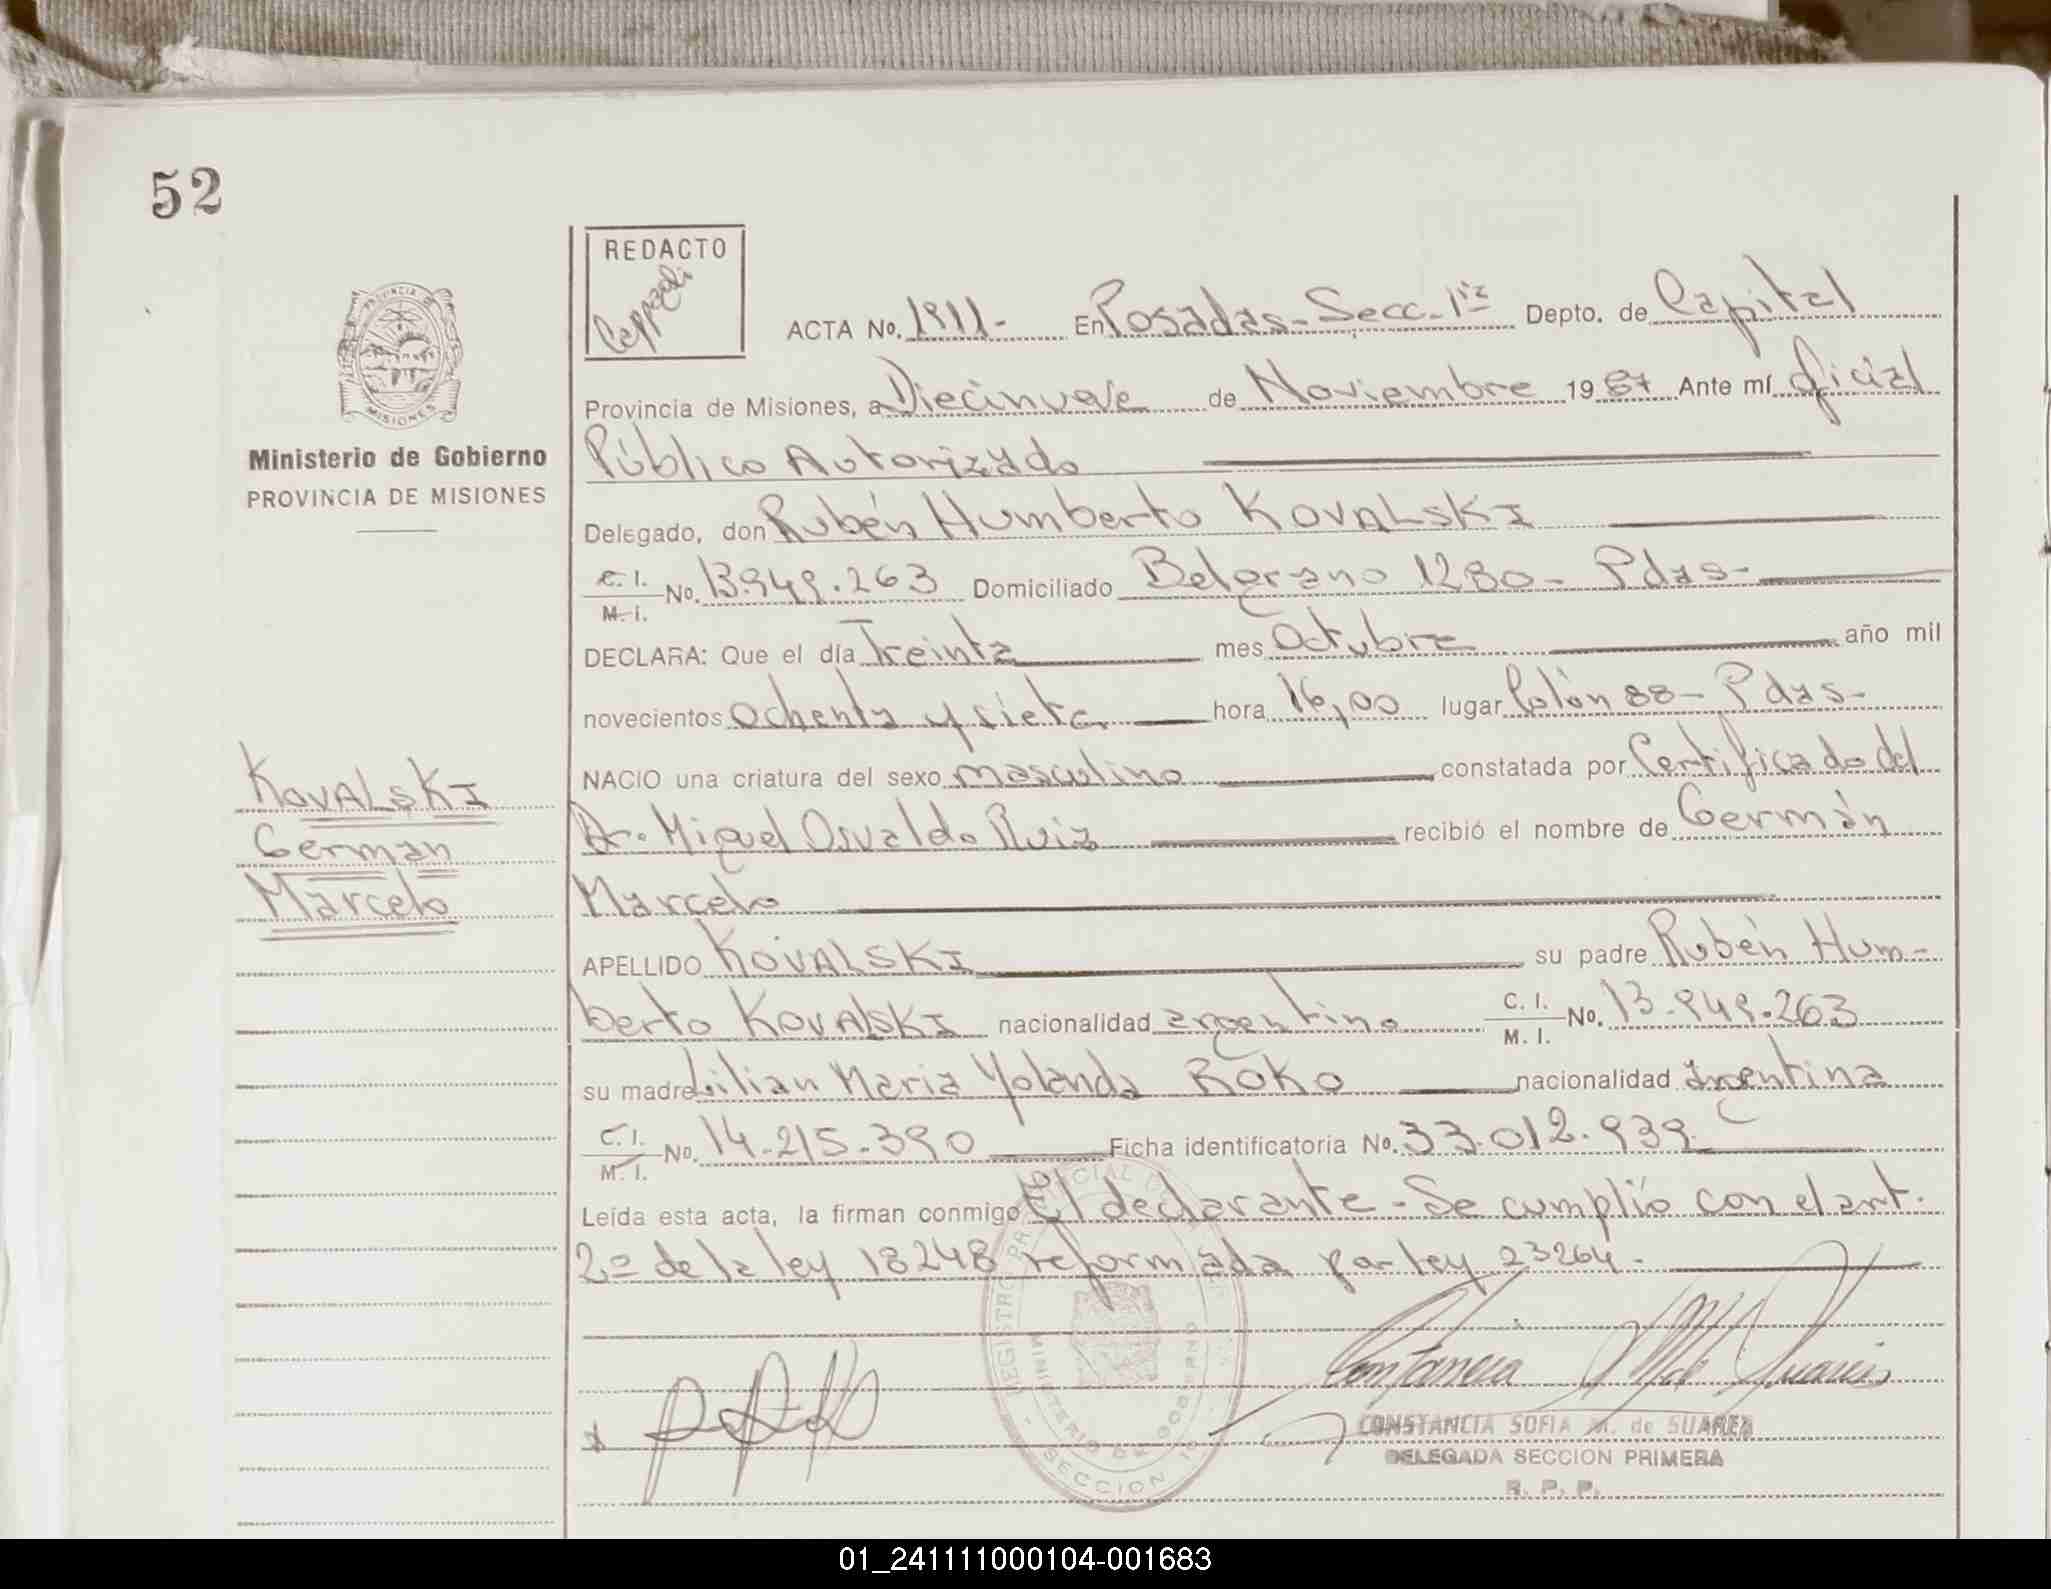 52
REDACTO
PROVINCIA DE
MISIONES
Ministerio de Gobierno
PROVINCIA DE MISIONES
ACTA No. 1911- En Posadas-Secc-1ra Depto. de Capital
Provincia de Misiones, a Diecinueve de Noviembre 1987 Ante mí Oficial
Público Autorizado
Delegado, don Rubén Humberto KOVALSKI
C. I. / M. I. No. 13.949.263 Domiciliado Belgrano 1280- Pdas-
DECLARA: Que el día Treinta mes Octubre año mil
novecientos ochenta y siete hora 16,00 lugar Colón 88- Pdas-
NACIO una criatura del sexo masculino constatada por Certificado del
Dr. Miguel Osvaldo Ruiz recibió el nombre de Germán
Marcelo
APELLIDO KOVALSKI su padre Rubén Hum-
berto KOVALSKI nacionalidad argentino C. I. / M. I. No. 13.949.263
su madre Lilian Maria Yolanda ROKO nacionalidad argentina
C. I. / M. I. No. 14.215.390 Ficha identificatoria No. 33.012.939
Leída esta acta, la firman conmigo El declarante-Se cumplió con el art.
2º de la ley 18248 reformada por ley 23264.
KOVALSKI
German
Marcelo
REGISTRO PROVINCIAL DE
MINISTERIO DE GOBIERNO
SECCION 1ª
CONSTANCIA SOFIA M. de SUAREZ
DELEGADA SECCION PRIMERA
R. P. P.
01_241111000104-001683